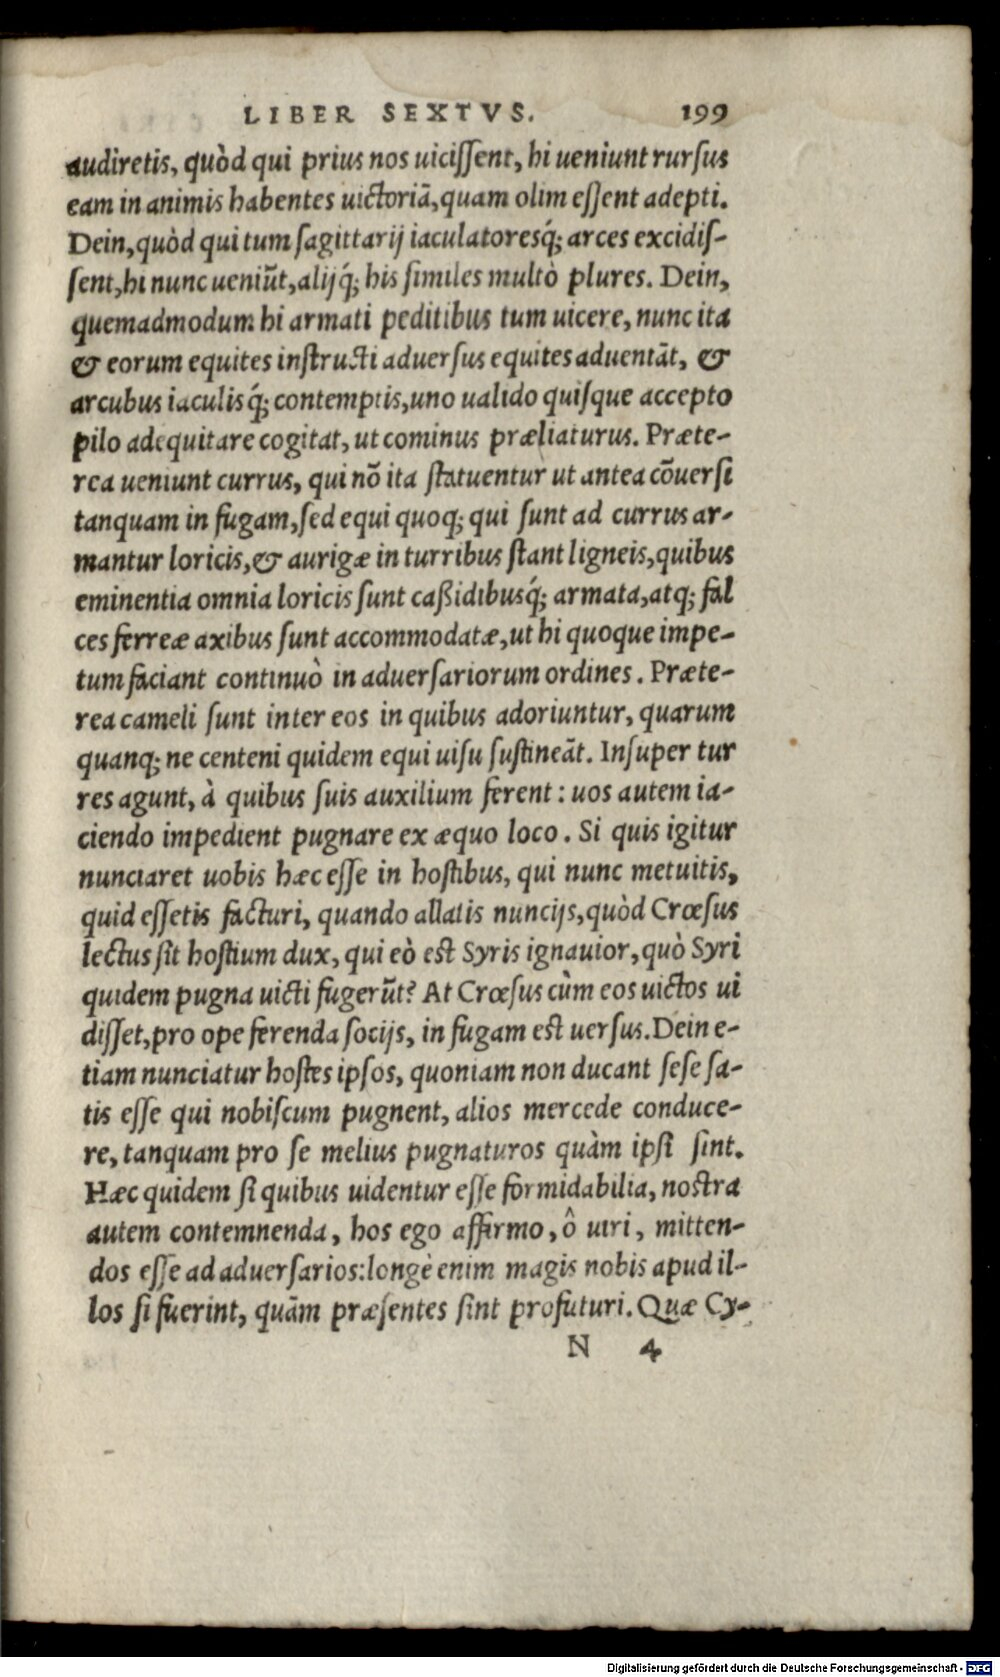 LIBER SEXTVS. 199
audiretis, quòd qui prius nos uicissent, hi ueniunt rursus
eam in animis habentes uictoriā, quam olim essent adepti.
Dein, quòd qui tum sagittarij iaculatoresq́; arces excidis-
sent, hi nunc ueniūt, alijq́; his similes multò plures. Dein,
quemadmodum hi armati peditibus tum uicere, nunc ita
& eorum equites instructi aduersus equites aduentāt, &
arcubus iaculisq́; contemptis, uno ualido quisque accepto
pilo adequitare cogitat, ut cominus præliaturus. Præte-
rea ueniunt currus, qui nō ita statuentur ut antea cōuersi
tanquam in fugam, sed equi quoq; qui sunt ad currus ar-
mantur loricis, & aurigæ in turribus stant ligneis, quibus
eminentia omnia loricis sunt caßidibusq́; armata, atq; fal
ces ferreæ axibus sunt accommodatæ, ut hi quoque impe-
tum faciant continuò in aduersariorum ordines. Præte-
rea cameli sunt inter eos in quibus adoriuntur, quarum
quanq; ne centeni quidem equi uisu sustineāt. Insuper tur
res agunt, à quibus suis auxilium ferent: uos autem ia-
ciendo impedient pugnare ex æquo loco. Si quis igitur
nunciaret uobis hæc esse in hostibus, qui nunc metuitis,
quid essetis facturi, quando allatis nuncijs, quòd Crœsus
lectus sit hostium dux, qui eò est Syris ignauior, quò Syri
quidem pugna uicti fugerūt? At Crœsus cùm eos uictos ui
disset, pro ope ferenda socijs, in fugam est uersus. Dein e-
tiam nunciatur hostes ipsos, quoniam non ducant sese sa-
tis esse qui nobiscum pugnent, alios mercede conduce-
re, tanquam pro se melius pugnaturos quàm ipsi sint.
Hæc quidem si quibus uidentur esse formidabilia, nostra
autem contemnenda, hos ego affirmo, ô uiri, mitten-
dos esse ad aduersarios: longè enim magis nobis apud il-
los si fuerint, quām præsentes sint profuturi. Quæ Cy-
N 4
Digitalisierung gefördert durch die Deutsche Forschungsgemeinschaft - DFG